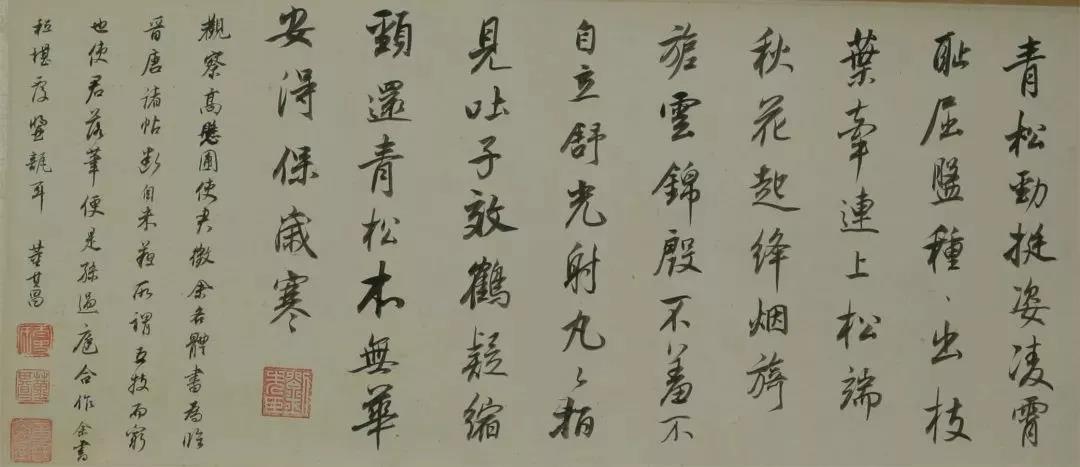 青松勁挺姿凌霄
耻屈盤種々出枝
葉牽連上松端
秋花起绛烟旖
旎雲錦殷不羞不
自立舒光射丸々柏
見吐子效鶴疑縮
頸還青松本無華
安得保歲寒
觀察高懸圃使君徵余各體書為臨
晉唐諸帖自米所謂五技而窮
也使君落筆便是孫過庭合作余書
秪堪覆瓿耳 董其昌